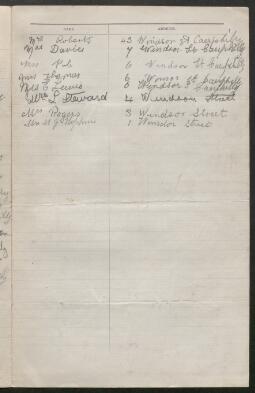 NAME. ADDRESS.
Mrs Roberts 43 Windsor St Caerphilly
Mrs Davies 7 Windsor St Caerphilly
Mrs 6 Windsor St Caerphilly
Miss Thomas 6 Winsor St Caerphilly
Mrs E Lewis 8 Windsor St Caerphilly
Mrs L Steward 4 Windsor Street
Mrs Rogers 3 Windsor Street
Mrs 1 Windsor Street